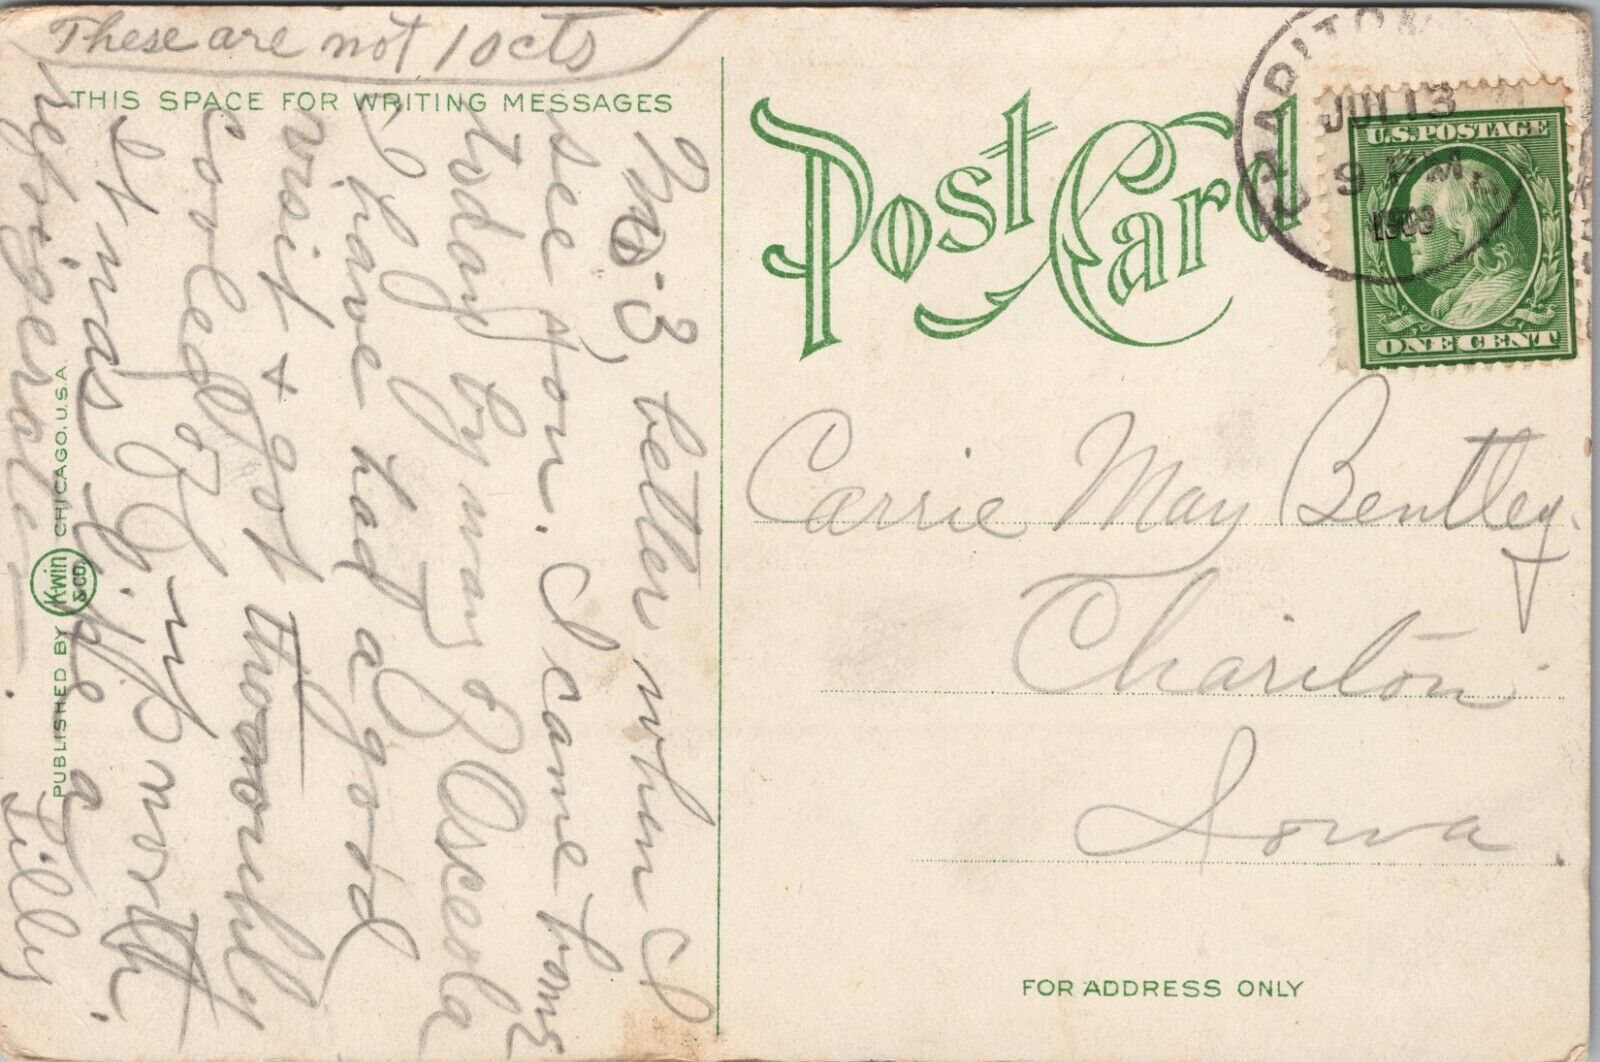 These are not 10cts
THIS SPACE FOR WRITING MESSAGES
3, letters when I
see you. I came home
today by way of Osceola
I have had a good
visit & got thoroughly
cooled off
It was like a
refrigerator.
Lilly
PUBLISHED BY Kwin & CO. CHICAGO, U.S.A.
Post Card
CHARITON
JUL 13
9 PM
1909
U.S. POSTAGE
ONE CENT
Carrie May Bentley.
Chariton
Iowa.
FOR ADDRESS ONLY